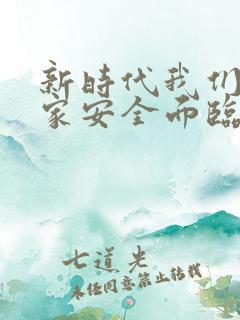 新时代我们
家安全而临
七道光
未经同意禁止转载